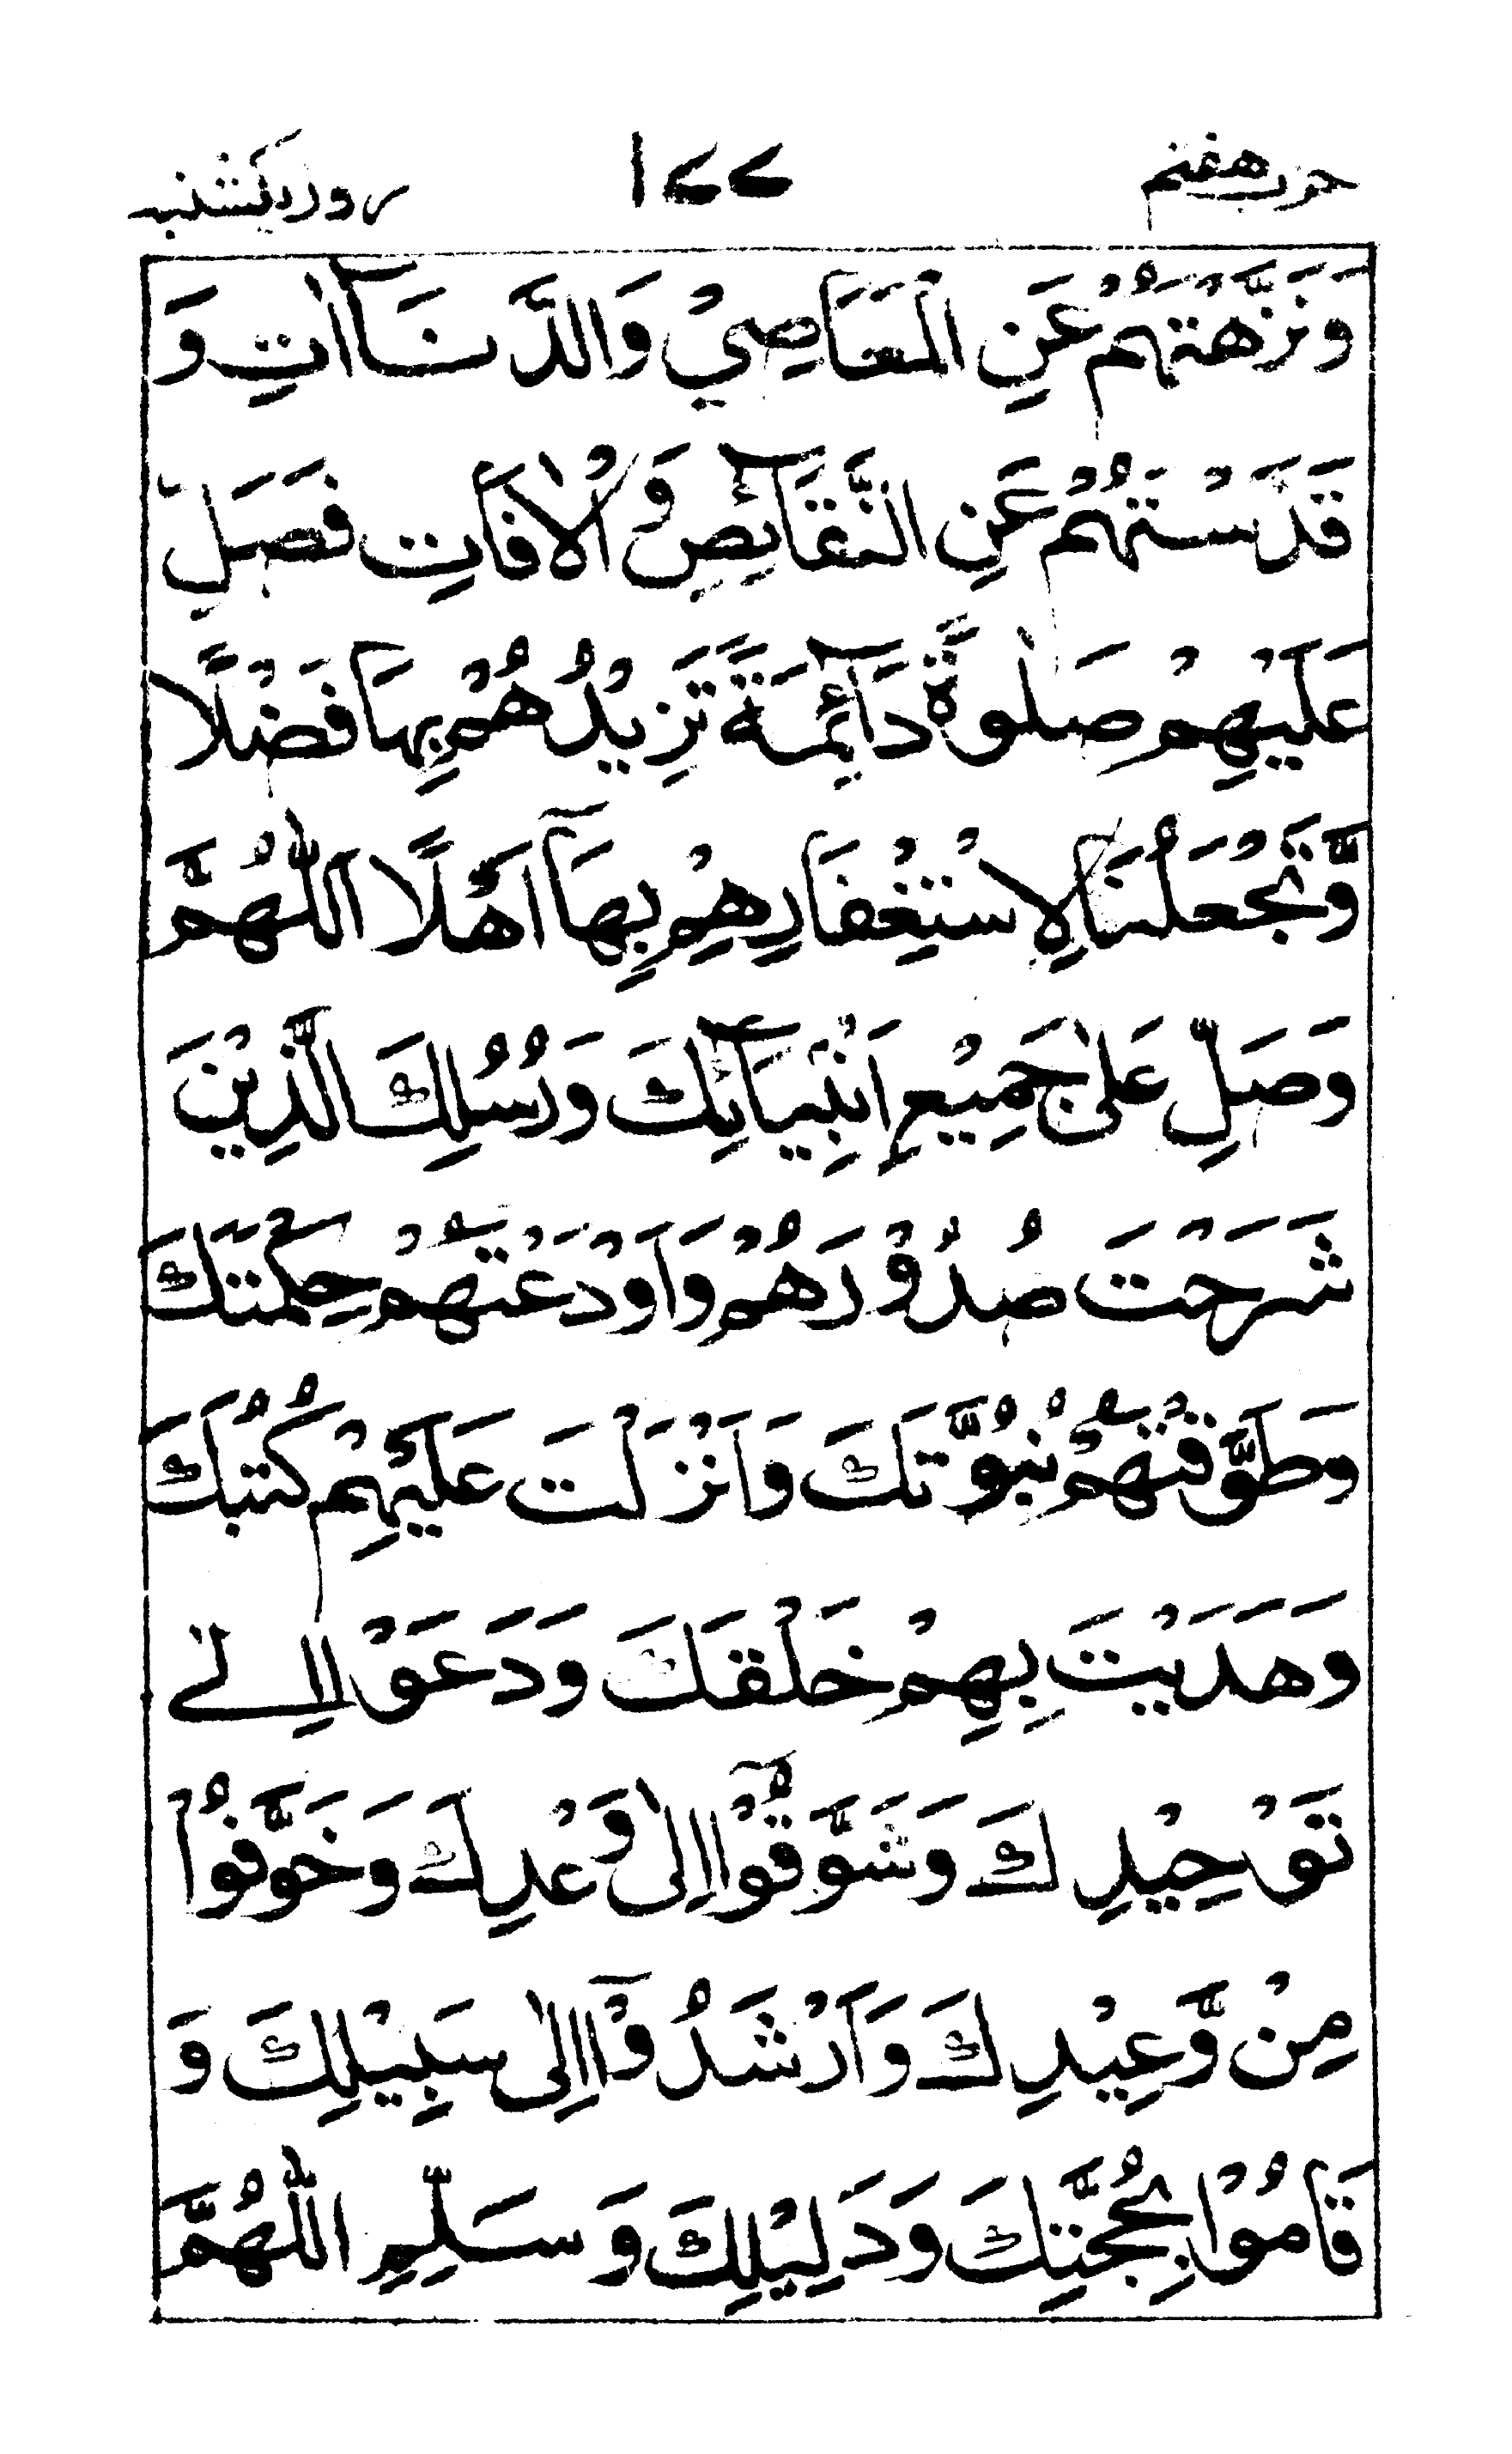 حزب هفتم ١٧٧ روز یکشنبه
وَنَزَّهْتَهُمْ عَنِ الْمَعَاصِيْ وَالدَّنَآاٰتِ وَ
قَدَّسْتَهُمْ عَنِ النَّقَآئِصِ وَالْاٰفَاتِ فَصَلِّ
عَلَيْهِمْ صَلٰوةً دَآئِمَةً تَزِيْدُهُمْ بِهَا فَضْلًا
وَّتَجْعَلُنَا لِاسْتِغْفَارِهِمْ بِهَآ اَهْلًا اَللّٰهُمَّ
وَصَلِّ عَلٰى جَمِيْعِ اَنْبِيَآئِكَ وَرُسُلِكَ الَّذِيْنَ
شَرَحْتَ صُدُوْرَهُمْ وَاَوْدَعْتَهُمْ حِكْمَتَكَ
وَطَوَّقْتَهُمْ نُبُوَّتَكَ وَاَنْزَلْتَ عَلَيْهِمْ كُتُبَكَ
وَهَدَيْتَ بِهِمْ خَلْقَكَ وَدَعَوْا اِلٰے
تَوْحِيْدِكَ وَشَوَّقُوْٓا اِلٰى وَعْدِكَ وَخَوَّفُوْا
مِنْ وَّعِيْدِكَ وَاَرْشَدُوْٓا اِلٰى سَبِيْلِكَ وَ
قَامُوْا بِحُجَّتِكَ وَدَلِيْلِكَ وَسَلِّمِ اللّٰهُمَّ